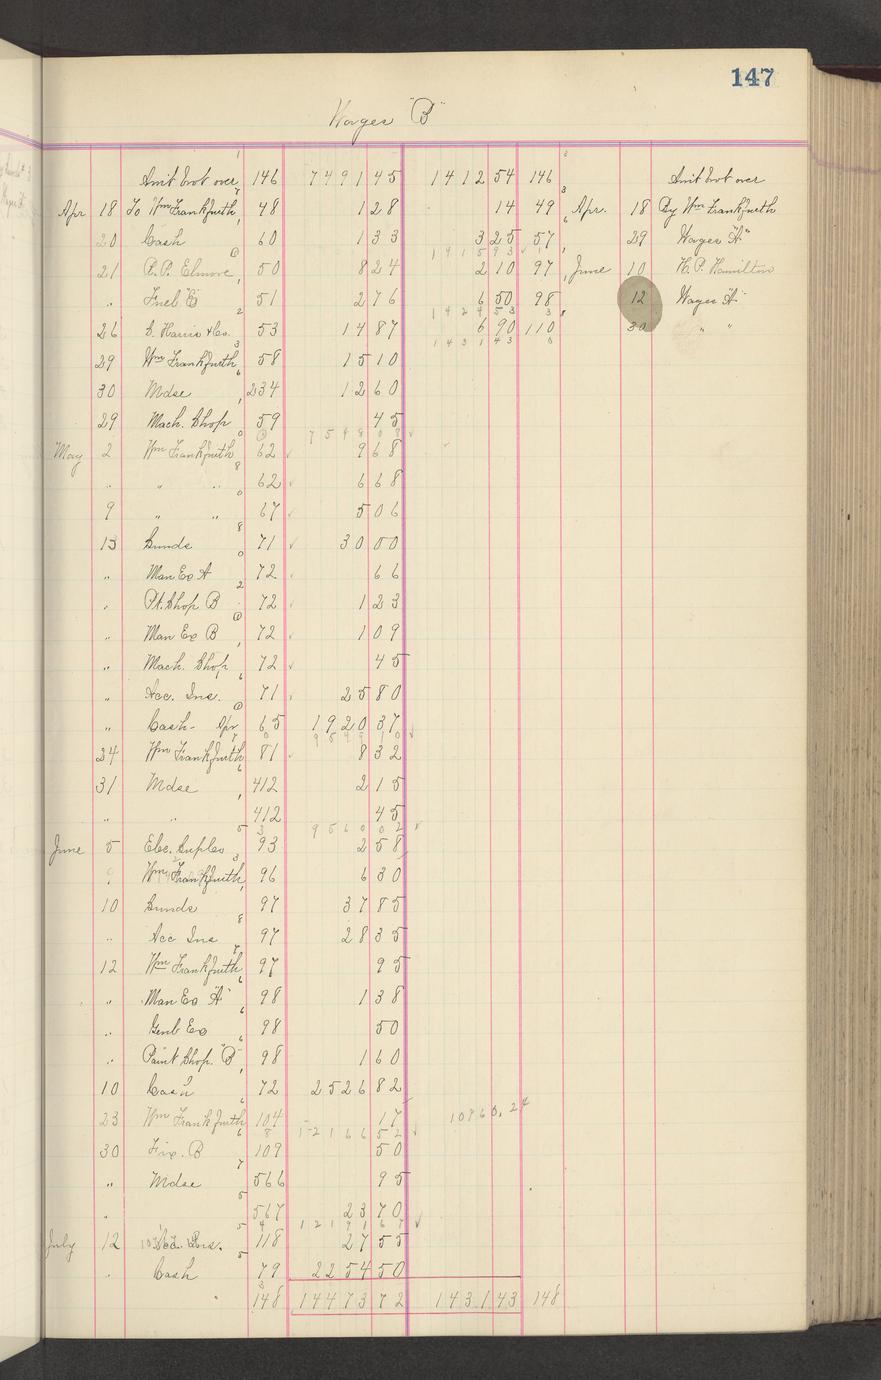 147
Wages "B"
Amt Brot over 146 7491 45 1412 54 146 Amt Brot over
Apr 18 To Wm Frankfurth 48 1 28 14 49 Apr. 18 By Wm Frankfurth
20 Cash 60 1 33 3 25 57 29 Wages "A"
141593
21 R.P. Elmore 50 8 24 2 10 97 June 10 H.P. Hamilton
" Fuel B 51 2 76 6 50 98 12 Wages "A"
142453
26 S. Harris & Co. 53 14 87 6 90 110 30 " "
143143
29 Wm Frankfurth 58 15 10
30 Mdse 234 12 60
29 Mach. Shop 59 45
754808
May 2 Wm Frankfurth 62 9 68
" " " 62 6 68
9 " " 67 5 06
13 Sunds 71 30 00
" Man Ex A 72 66
" Pt. Shop B 72 1 23
" Man Ex B 72 1 09
" Mach. Shop 72 45
" Acc. Ins. 71 25 80
" Cash - Apr 65 1920 37
959910
24 Wm Frankfurth 81 8 32
31 Mdse 412 2 15
" " 412 45
956002
June 5 Elec. Suples 93 2 58
9 Wm Frankfurth 96 6 30
10 Sunds 97 37 85
" Acc Ins 97 28 35
12 Wm Frankfurth 97 95
" Man Ex "A" 98 1 38
" Genl Ex 98 50
" Paint Shop. "B" 98 1 60
10 Cash 72 2526 82
23 Wm Frankfurth 104 17 10760.24
1216652
30 Fix. B 109 50
" Mdse 566 95
" 567 23 70
1219167
July 12 Acc. Ins. 118 27 55
" Cash 79 2254 50
148 14473 72 1431 43 148